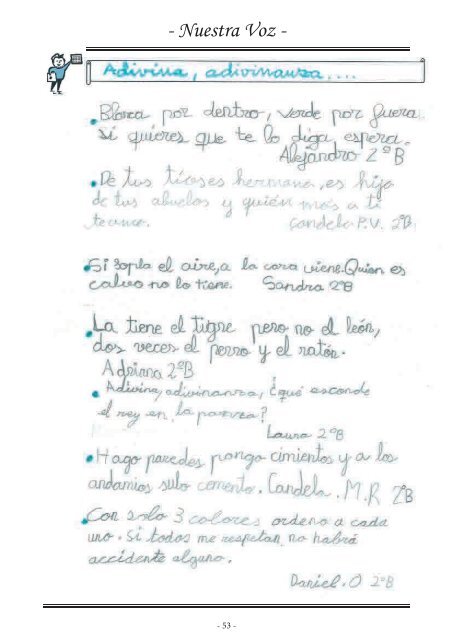 - Nuestra Voz -
Adivina, adivinanza....
Blanca por dentro, verde por fuera
si quieres que te lo diga espera.
Alejandro 2ºB
De tus tioses hermana, es hija
de tus abuelos y quién más a ti
te ama.
Candela P.V. 2ºB
Si sopla el aire, a la cara viene. Quien es
calvo no lo tiene. Sandra 2ºB
La tiene el tigre pero no el león,
dos veces el perro y el ratón.
Adriana 2ºB
Adivina, adivinanza, ¿qué esconde
el rey en la panza?
Laura 2ºB
Hago paredes, pongo cimientos y a los
andamios subo contento. Candela. M.R 2ºB
Con solo 3 colores ordeno a cada
uno. Si todos me respetan no habrá
accidente alguno.
Daniel.O 2ºB
- 53 -